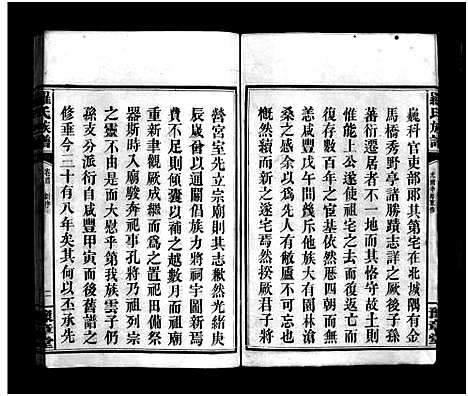 羅氏族譜
巍科官吏部郎其第宅在北城隅有金
馬橋秀野亭諸勝蹟志詳之厥後子孫
蕃衍遷居不一地而其恪守故土則
惟能上公遂使祖宅之去而復返它亡而
復存數百年之基依然歷四朝而無
恙咸豐庚申十幾兵斥他族大有園林滄
桑之感余以爲人有敝廬不忍舍去亦
慨然而新之遂宅焉然揆厥君子將
營宮室先立宗廟則其志歉然光緒庚
辰歲曾以通關倡族力將祠宇圖新引
費不足則傾囊以補之越數月而祖廟
重新聿觀厥成繼而爲之置祀田備祭
器應時入廟駿奔祀事孔將乃祖列宗
之靈不由是而大慰乎第我族雲子仍
孫支分派衍自咸豐甲寅而後舊譜之
修垂今三十有八年矣其何以丕承先
羅氏族譜
卷首
二
豫章堂